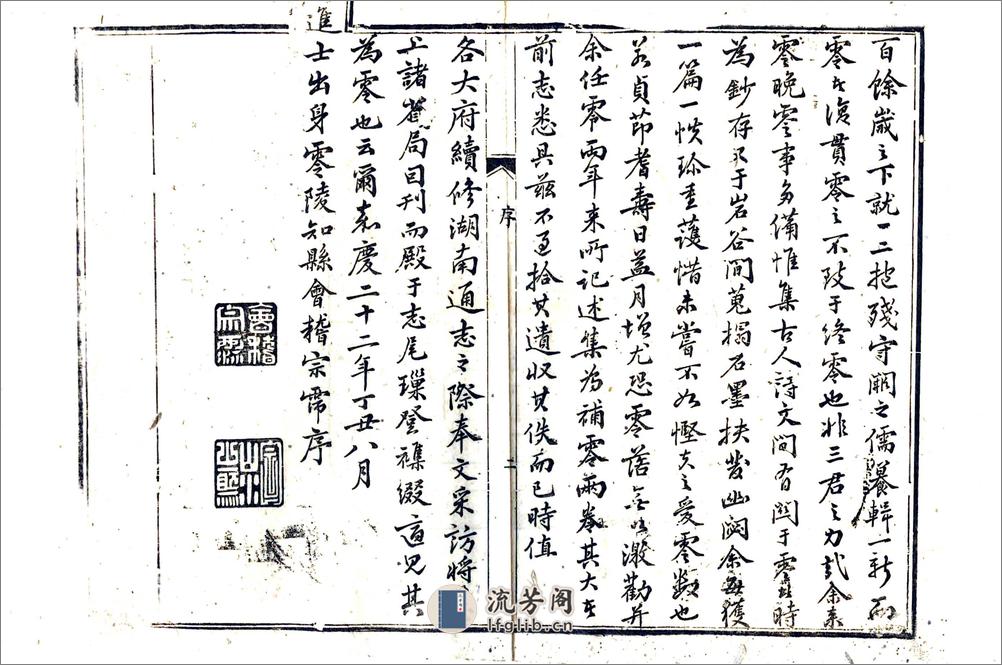 百餘歲之下就一二抱殘守闕之儒纂輯一新而
零于復貫零之不改于終零也非三君之力哉余來
零晚零事多備惟集古人詩文間有関于零者時
為鈔存又于岩谷間蒐搨石墨扶發幽閟余每獲
一篇一帙珍重護惜未嘗不如慳夫之愛零數也
若貞節耆壽日益月增尤恐零落無以激勸并
余任零兩年來所記述集為補零兩卷其大者
前志悉具茲不過拾其遺収其佚而已時值
序
二
各大府續修湖南通志之際奉文采訪將
上諸省局因刊而殿于志尾璅登襍綴適見其
為零也云爾嘉慶二十二年丁丑八月
進士出身零陵知縣會稽宗霈序
會稽宗霈
流芳阁
lfglib.cn